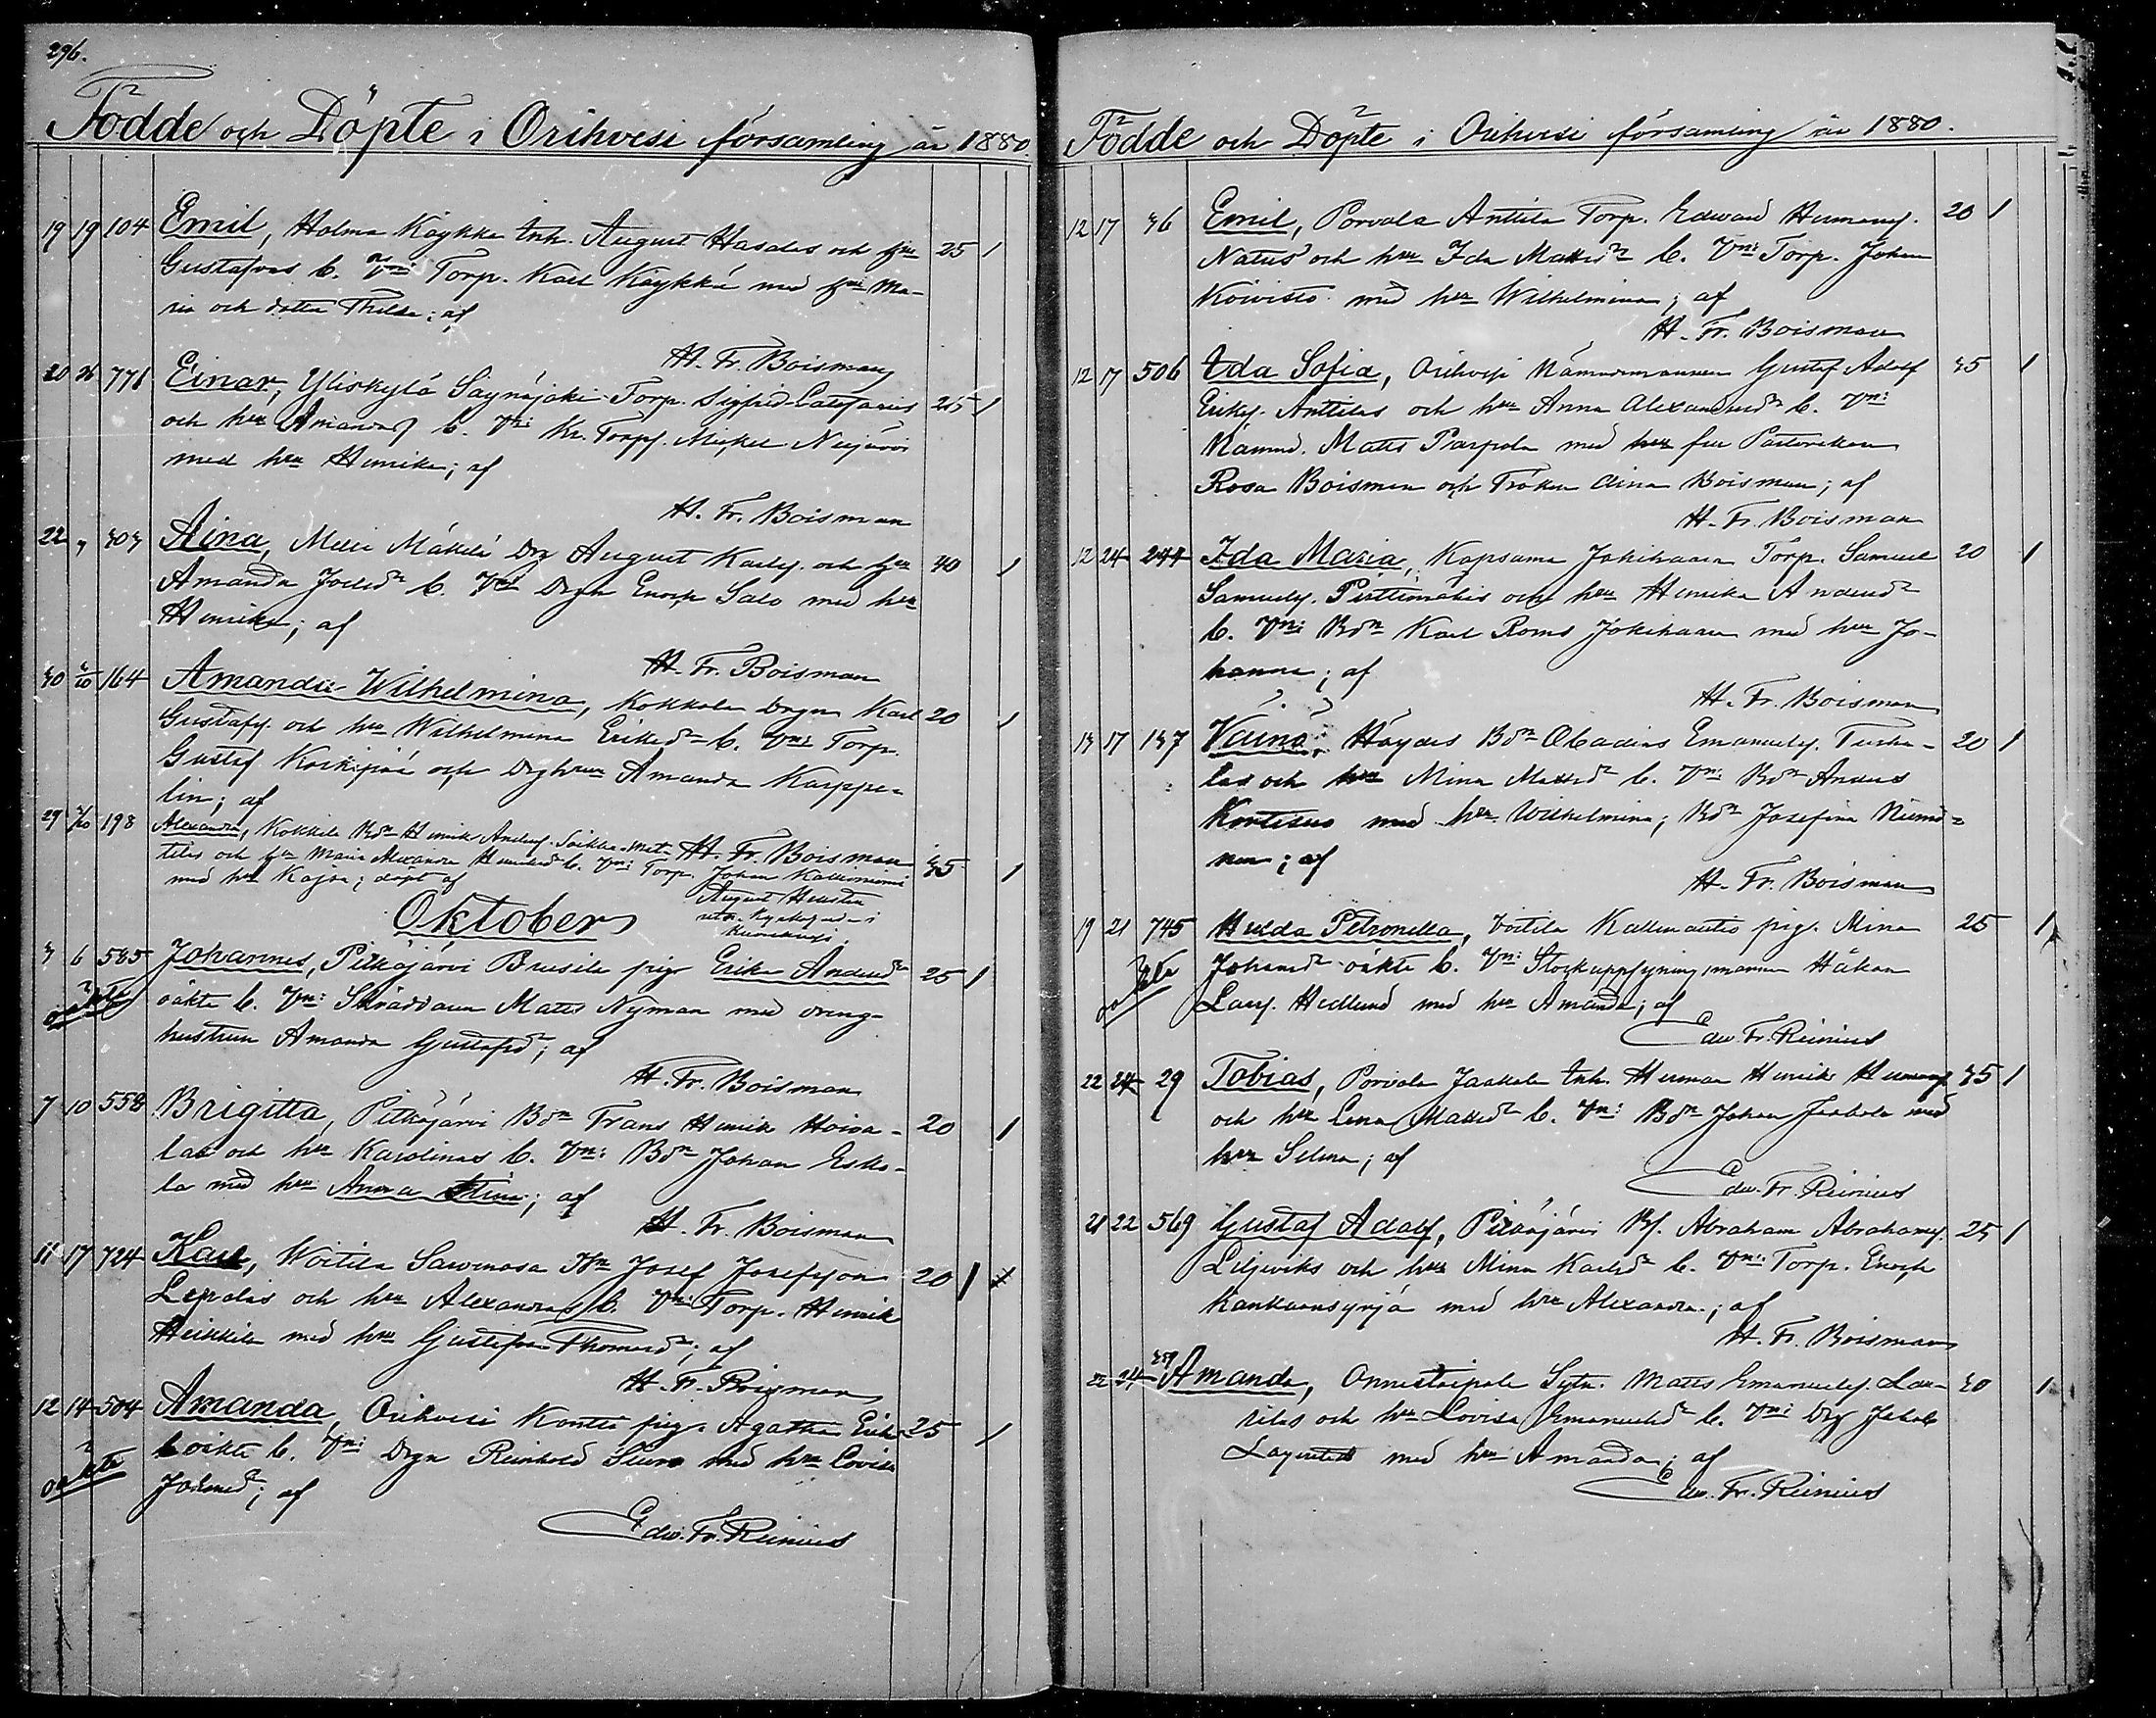 296.
Födde och Döpte i Orihvesi församling år 1880.
19 19 104 Emil, Holma Käykkä Inh. August Hasalas och hu 25 1
Gustafvas b. Vn: Torp. Karl Käykkä med hu Ma-
ria och dotter Thilda; af
H. Fr. Boisman
20 26 776 Einar, Yliskylä Säynäjoki Torp. Sigfrid
och hu Amandas b. Vn: Torp. Mickel 25 1
med hu Henrika; af
H. Fr. Boisman
22 " 303 Aina, Mäkelä Drg August Karls. och hu 30 1
Amanda b. Vn: Drgn Enoch Salo med hu
Henrika; af
H. Fr. Boisman
30 3/10 164 Amanda Wilhelmina, Kokkola Drgn Karl 20 1
Gustafs. och hu Wilhelmina Eriksdr b. Vn: Torp.
Gustaf Koskipää och Drghun Amanda Karppe-
lin; af
H. Fr. Boisman
29 3/10 198 Alexandra, Kokkila Bdn Henrik Anders. Seikka-Mat- 35 1
tilas och hu Maria Alexandra b. Vn: Torp. Johan Kallioniemi
med hu Kajsa; döpt af
August
Oktober
3 6 585 Johannes, Pitkäjärvi Brusila pig. Erika Andersdr 25 1
oäkta oäkta b. Vn: Skräddaren Matts Nyman med dreng-
hustrun Amanda Gustafsdr; af
H. Fr. Boisman
7 10 558 Brigitta, Pitkäjärvi Bdn Frans Henrik Hoiva- 20 1
las och hu Karolinas b. Vn: Bdn Johan Esko-
la med hu Anna Stina; af
H. Fr. Boisman
11 17 724 Karl, Woitila Josef Josefsson 20 1 x
Lepolas och hu Alexandras b. Vn: Torp. Henrik
Heikkilä med hu Gustafva Thomasdr; af
H. Fr. Boisman
12 14 504 Amanda, Orihvesi Kontto pig. Agatha 25 1
oäkta oäkta b. Vn: Drgn Reinhold med hu Lovisa
af
Edw. Fr. Reinius
Födde och Döpte i Orihvesi församling år 1880.
12 17 36 Emil, Porvola Anttila Torp. Edward Hermans. 20 1
och hu Ida Mattsdr b. Vn: Torp. Johan
Koivisto med hu Wilhelmina; af
H. Fr. Boisman
12 17 506 Ida Sofia, Orihvesi Nämndemannen Gustaf Adolf 35 1
Eriks. Anttilas och hu Anna Alexandersdr b. Vn:
Nämnd. Matts Parpola med hu fru Pastorskan
Rosa Boisman och Fröken Aina Boisman; af
H. Fr. Boisman
12 24 244 Ida Maria, Kapsama Jokihaara Torp. Samuel 20 1
Samuels. Pirttimäkis och hu Henrika Andersdr
b. Vn: Bdn Karl Roms Jokihaara med hu Jo-
hanna; af
H. Fr. Boisman
13 17 137 Väinö, Häydes Bdn Obadias Emanuels. 20 1
las och hu Mina Mattsdr b. Vn: Bdn Anders
Kontisus med hu Wilhelmina; Bdn Josefina Niemi-
nen; af
H. Fr. Boisman
19 21 745 Hulda Petronella, Voitila pig. Mina 25 1
oäkta Johansdr oäkta b. Vn: Stockuppsyningsmannen Håkan
Lars. Hedlund med hu Amanda; af
Edw. Fr. Reinius
22 24 29 Tobias, Porvola Jaakola Inh. Herman Henrik Hermans. 35 1
och hu Lena Mattsdr b. Vn: Bdn Johan Jaakola med
hu Selma; af
Edw. Fr. Reinius
21 22 569 Gustaf Adolf, Pitkäjärvi Abraham Abrahams. 25 1
Liljeviks och hu Mina Karlsdr b. Vn: Torp. Enoch
Kankaansyrjä med hu Alexandra; af
H. Fr. Boisman
22 24 359 Amanda, Onnistaipale Sytn. Matts Emanuels. Lau- 30 1
rilas och hu Lovisa Emanuelsdr b. Vn: Drg Jakob
Lagerstedt med hu Amanda; af
Edw. Fr. Reinius